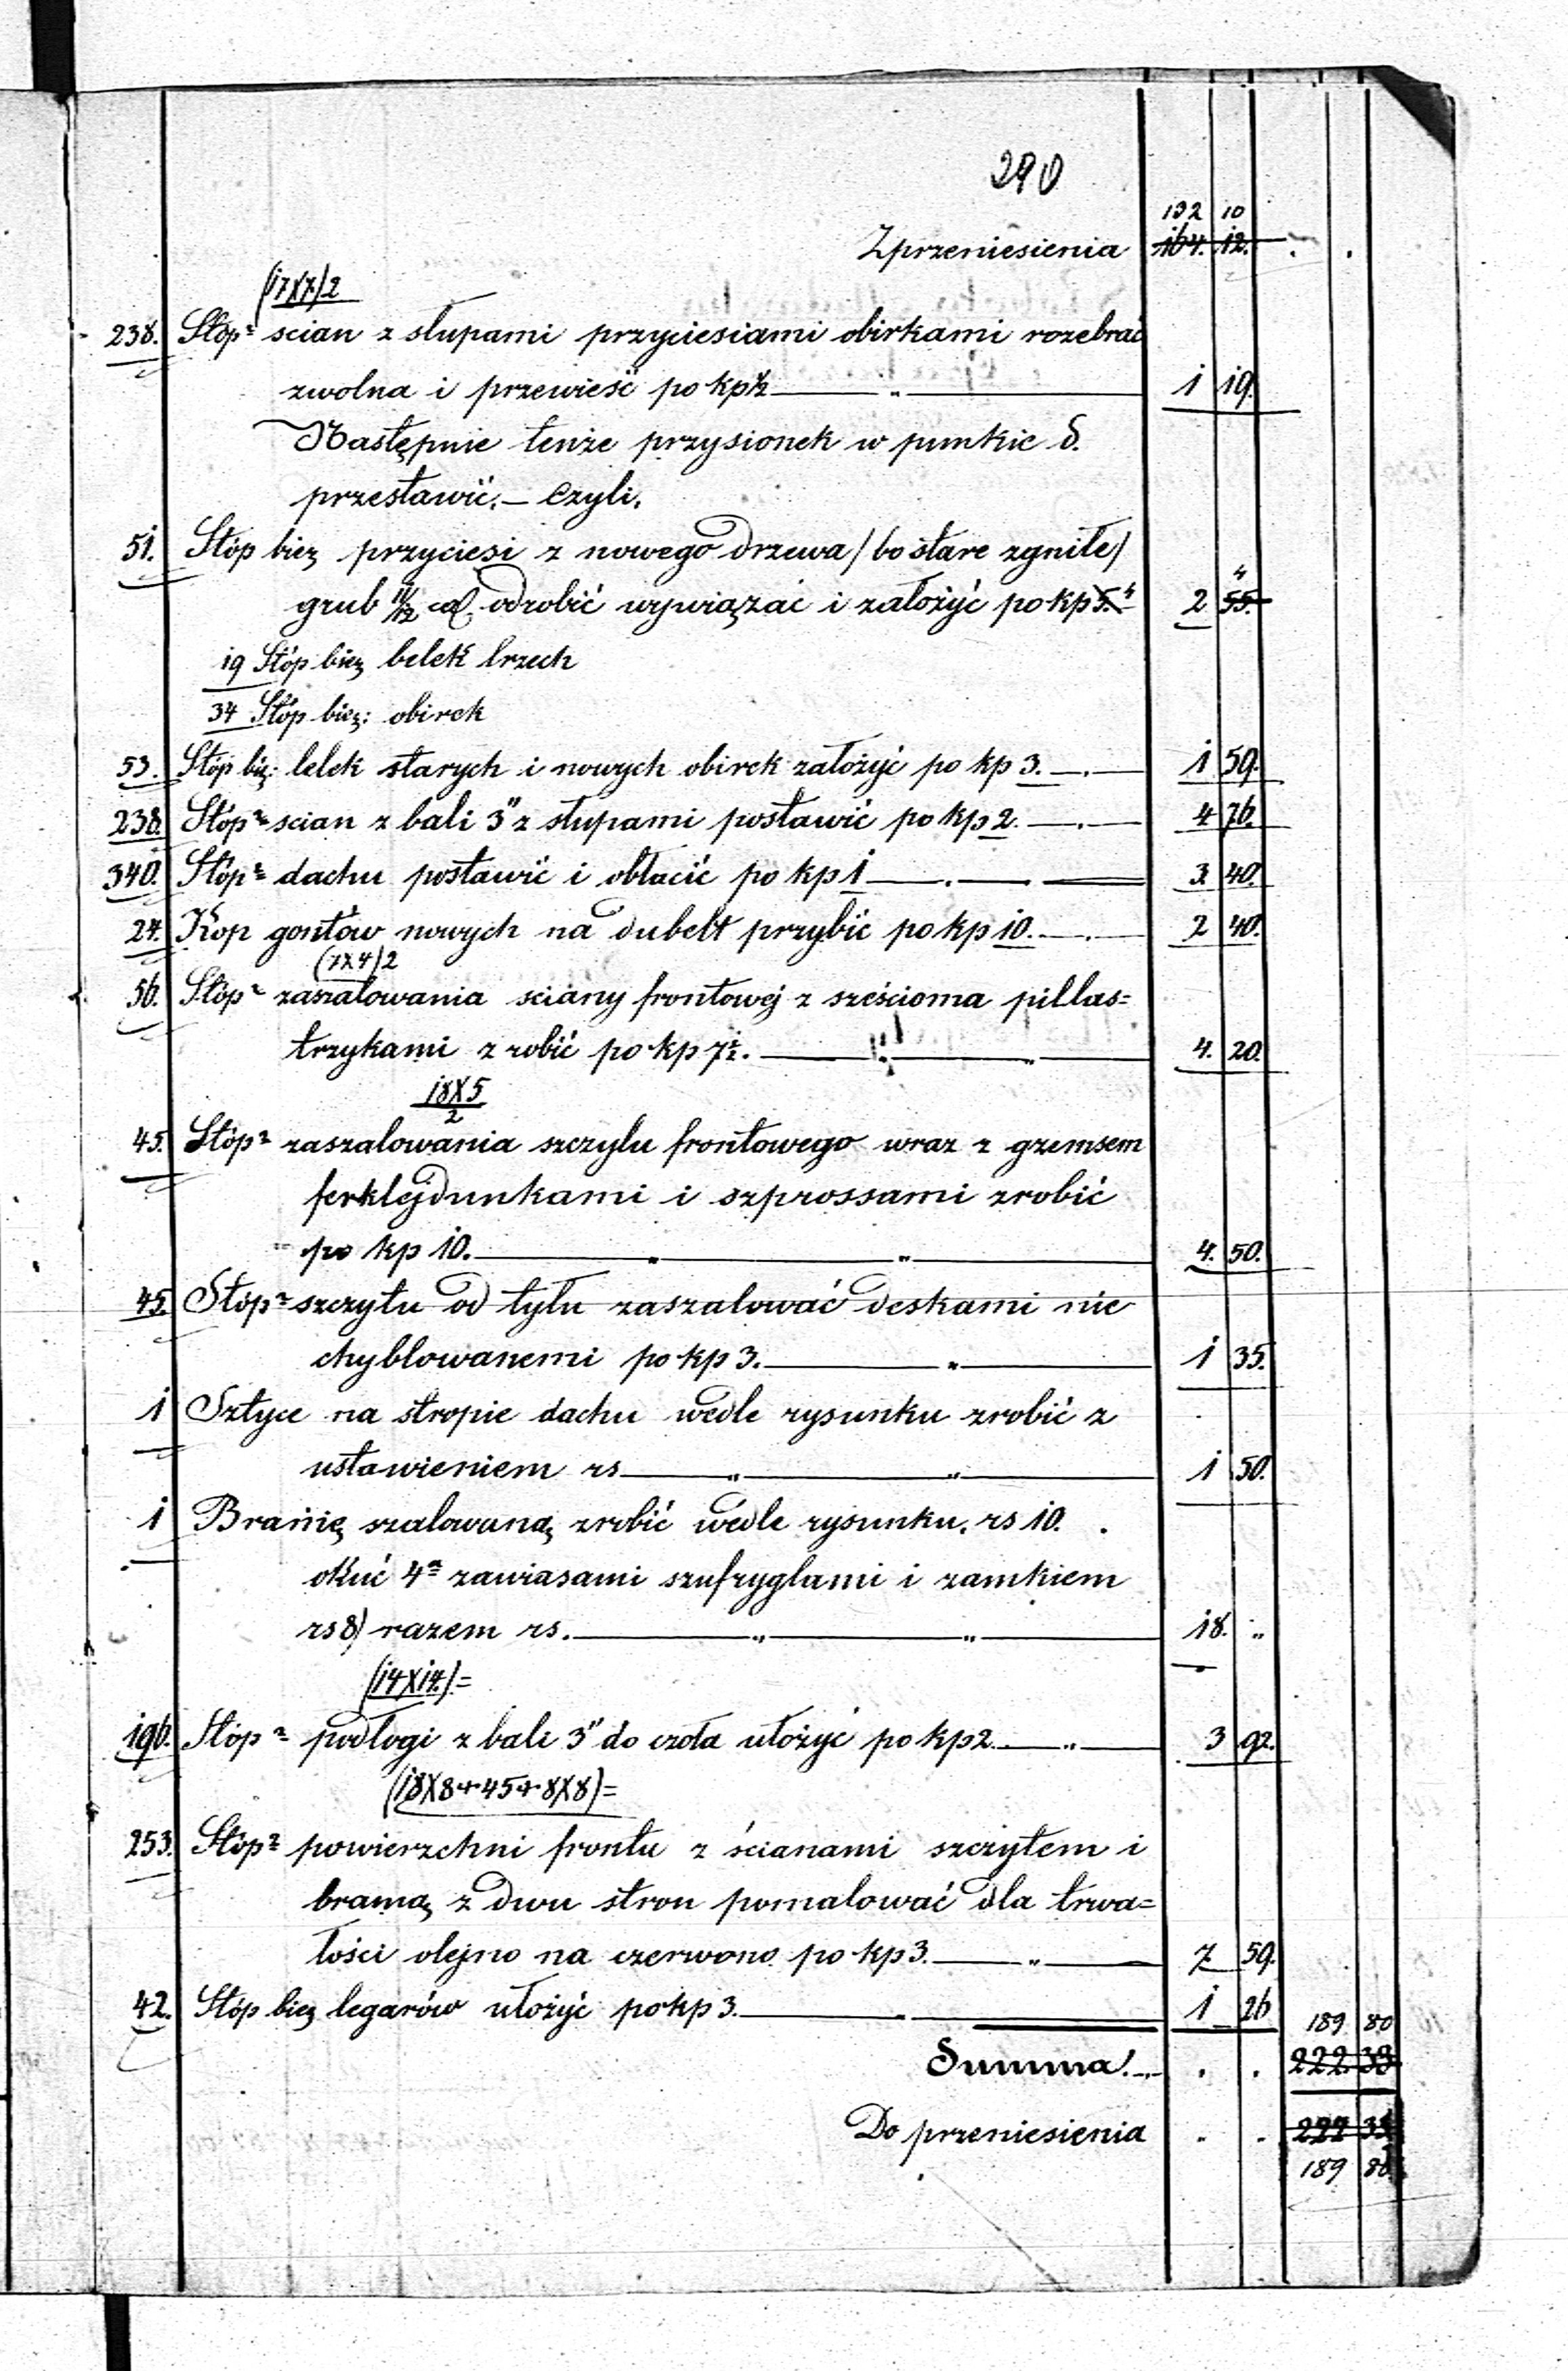 290
132 10
Zprzeniesienia 164. 12.
(17X7)2
238. Stóp² scian z słupami przyciesiami obirkami rozebrać
zwolna i przewieść po kp ½ — „ — 1 19.
Następnie tenże przysionek w punkcie d.
przestawić. — Czyli.
51. Stóp bież przyciesi z nowego drzewa / bo stare zgniłe /
4
grub 11/12 cal. odrobić wywiązać i założyć po kp 5. 4 2 55.
19 Stóp bież belek trzech
34 Stóp bież: obirek
53. Stóp bież: belek starych i nowych obirek założyć po kp 3. — . — 1 59.
238. Stóp² scian z bali 3" z słupami postawić po kp 2. — . — 4 76.
340. Stóp² dachu postawić i obłacić po kp 1 — . — 3. 40.
24. Kop gontów nowych na dubelt przybić po kp 10. — . — 2 40.
(7X4)2
56. Stóp² zaszalowania sciany frontowej z sześcioma pillas=
trzykami zrobić po kp 7½. — „ — „ — 4. 20.
18X5
2
45. Stóp² zaszalowania szczytu frontowego wraz z gzemsem
ferklejdunkami i szprossami zrobić
po kp 10. — „ — „ — 4. 50.
45. Stóp² szczytu od tyłu zaszalować deskami nie
chyblowanemi po kp 3. — „ — 1 35.
1 Sztyce na stropie dachu wedle rysunku zrobić z
ustawieniem rs — „ — „ — 1 50.
1 Bramę szalowaną zrobić wedle rysunku. rs 10.
okuć 4ª zawiasami szufryglami i zamkiem
rs 8) razem rs. — „ — „ — 18. „
(14X14.)=
196. Stóp² podłogi z bali 3" do czoła ułożyć po kp 2. — „ — 3 92.
(18X8+45+8X8)=
253. Stóp² powierzchni frontu z ścianami szczytem i
bramą z dwu stron pomalować dla trwa=
łości olejno na czerwono po kp 3. — „ — 7 59.
42. Stóp bież legarów ułożyć po kp 3. — „ — 1 26
189 80
Summa! . . 222. 33
Do przeniesienia . . 222 33
189 80